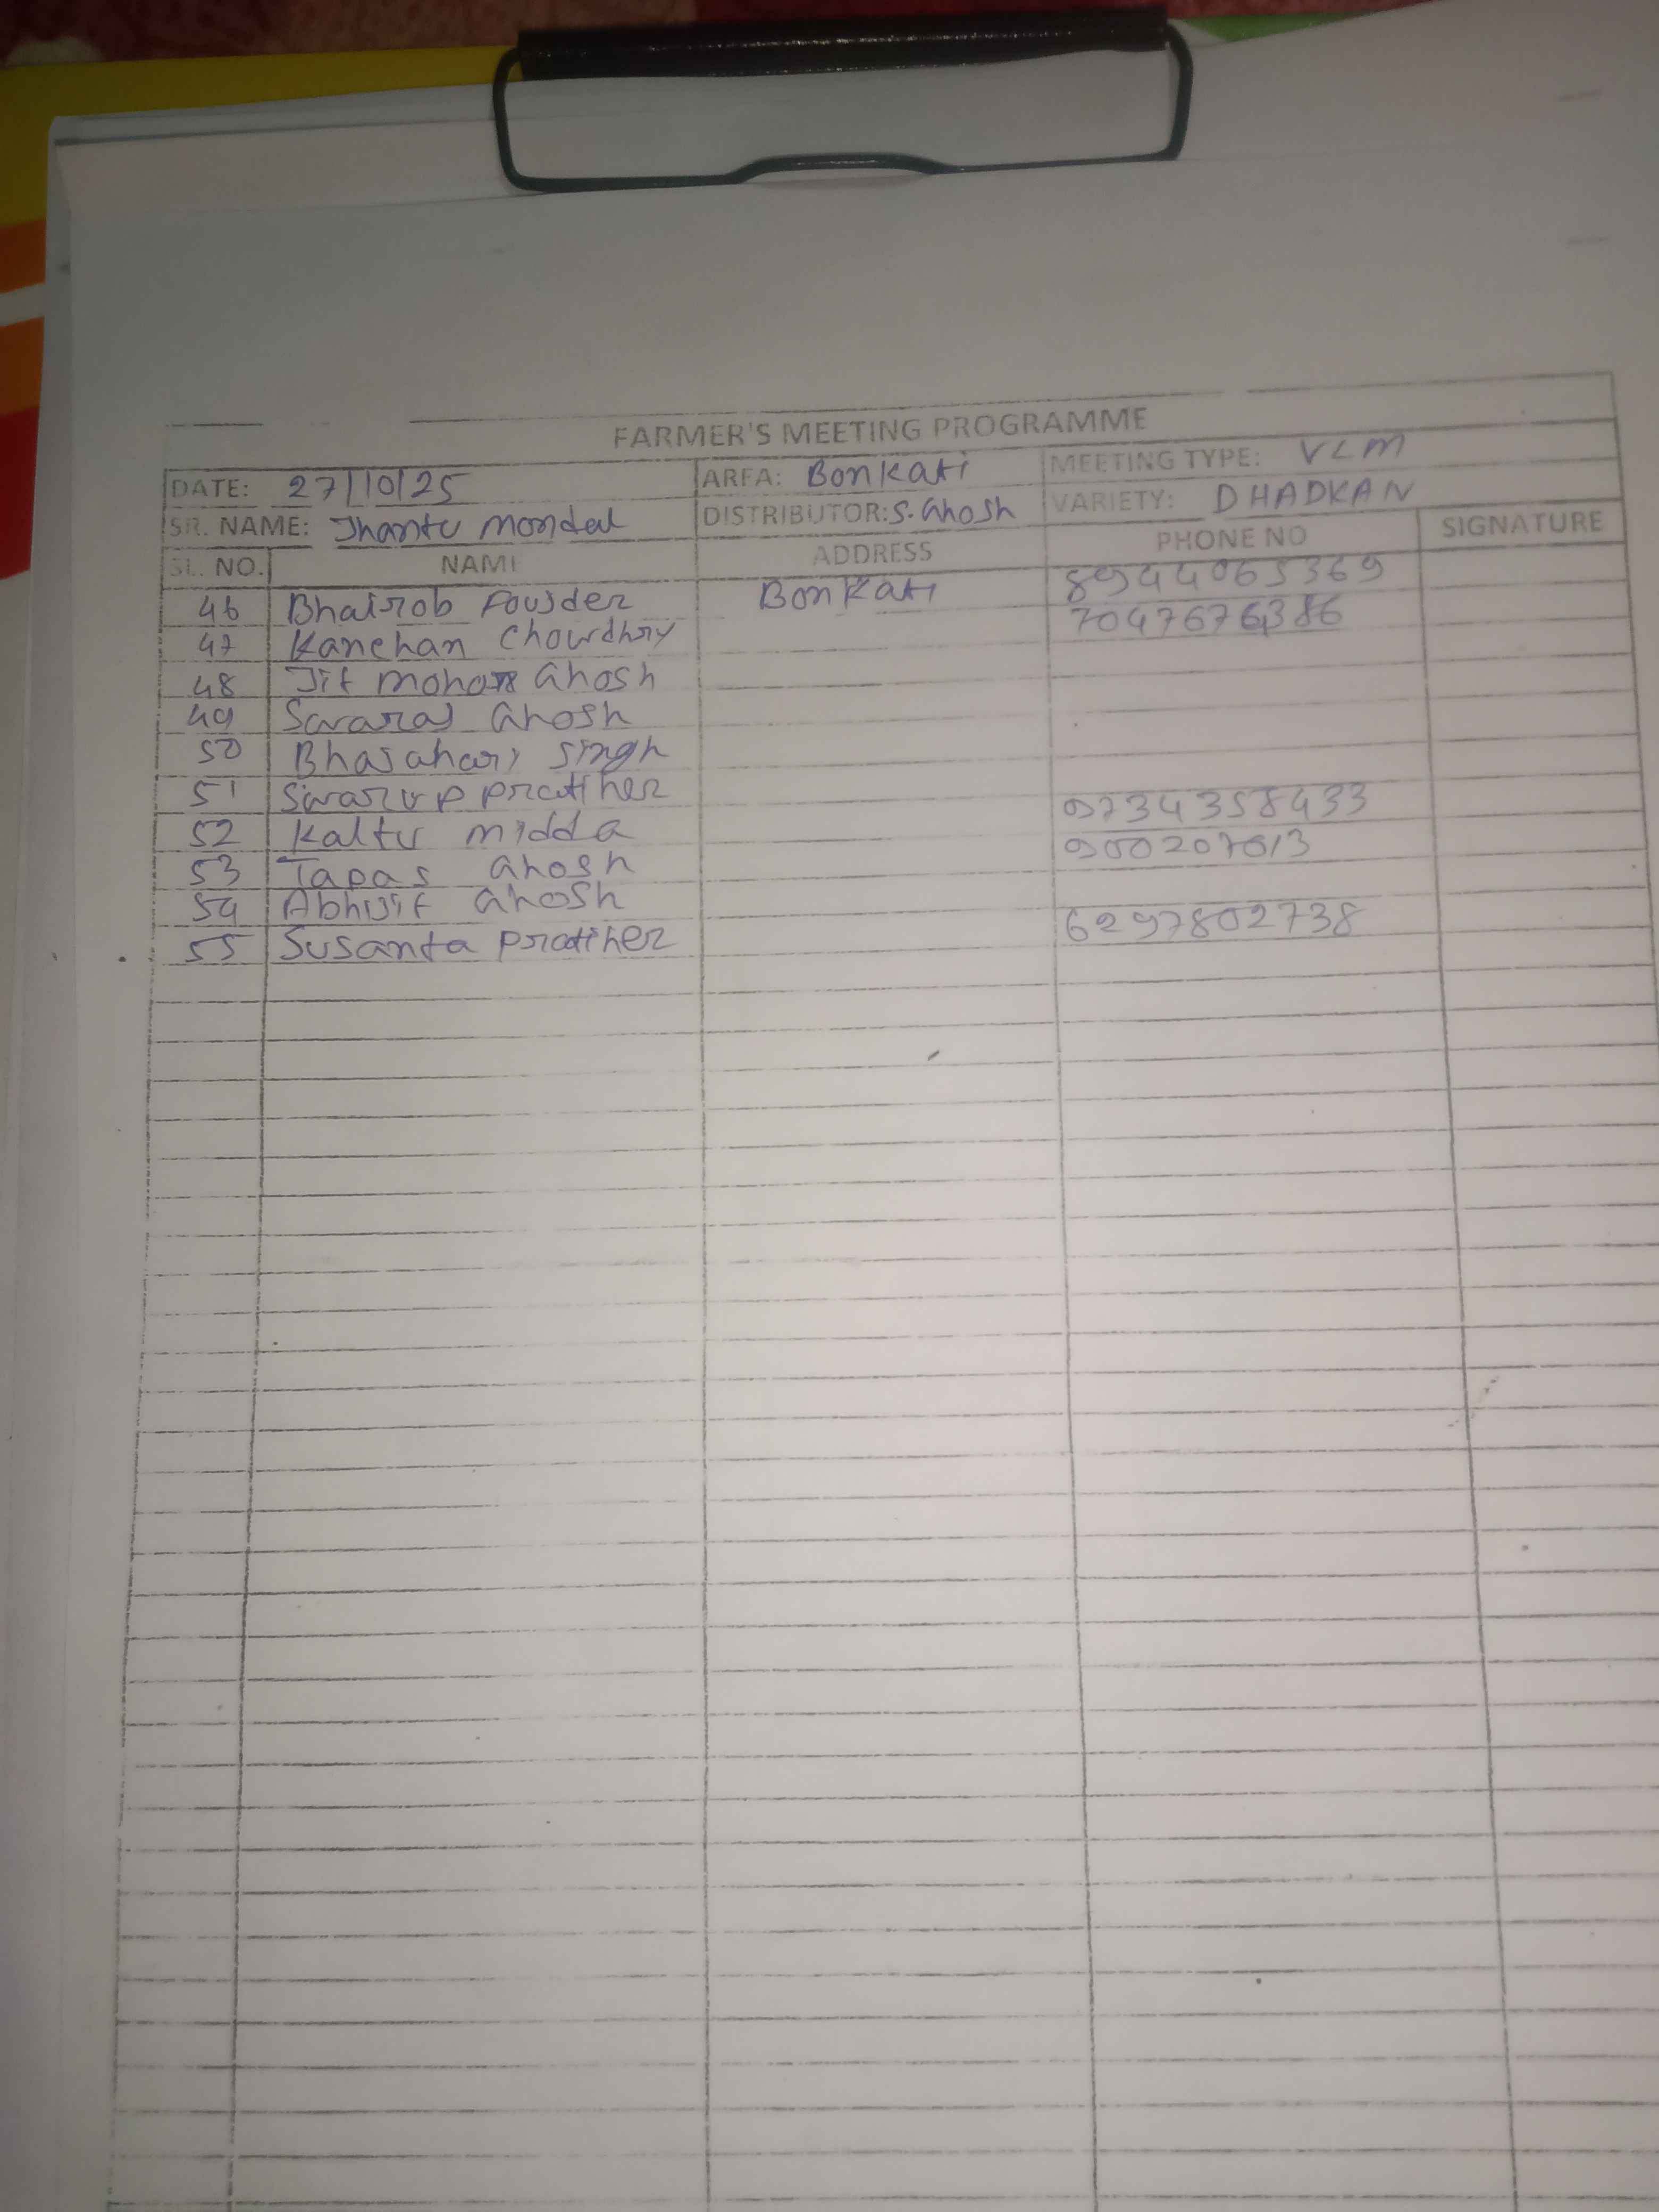 FARMER'S MEETING PROGRAMME
DATE: 27/10/25 AREA: Bonkati MEETING TYPE: VLM
SR. NAME: Jhantu Mondal DISTRIBUTOR: S. Ghosh VARIETY: DHADKAN
SL. NO. NAME ADDRESS PHONE NO SIGNATURE
46 Bhairob Foujder Bonkati 8944065369
47 Kanchan Chowdhry 7047676386
48 Jit mohon Ghosh
49 Swaraj Ghosh
50 Bhajahari Singh
51 Swarup pratiher
52 Kaltu midda 9734358433
53 Tapas Ghosh 900207613
54 Abhijit Ghosh
55 Susanta pratiher 6297802738